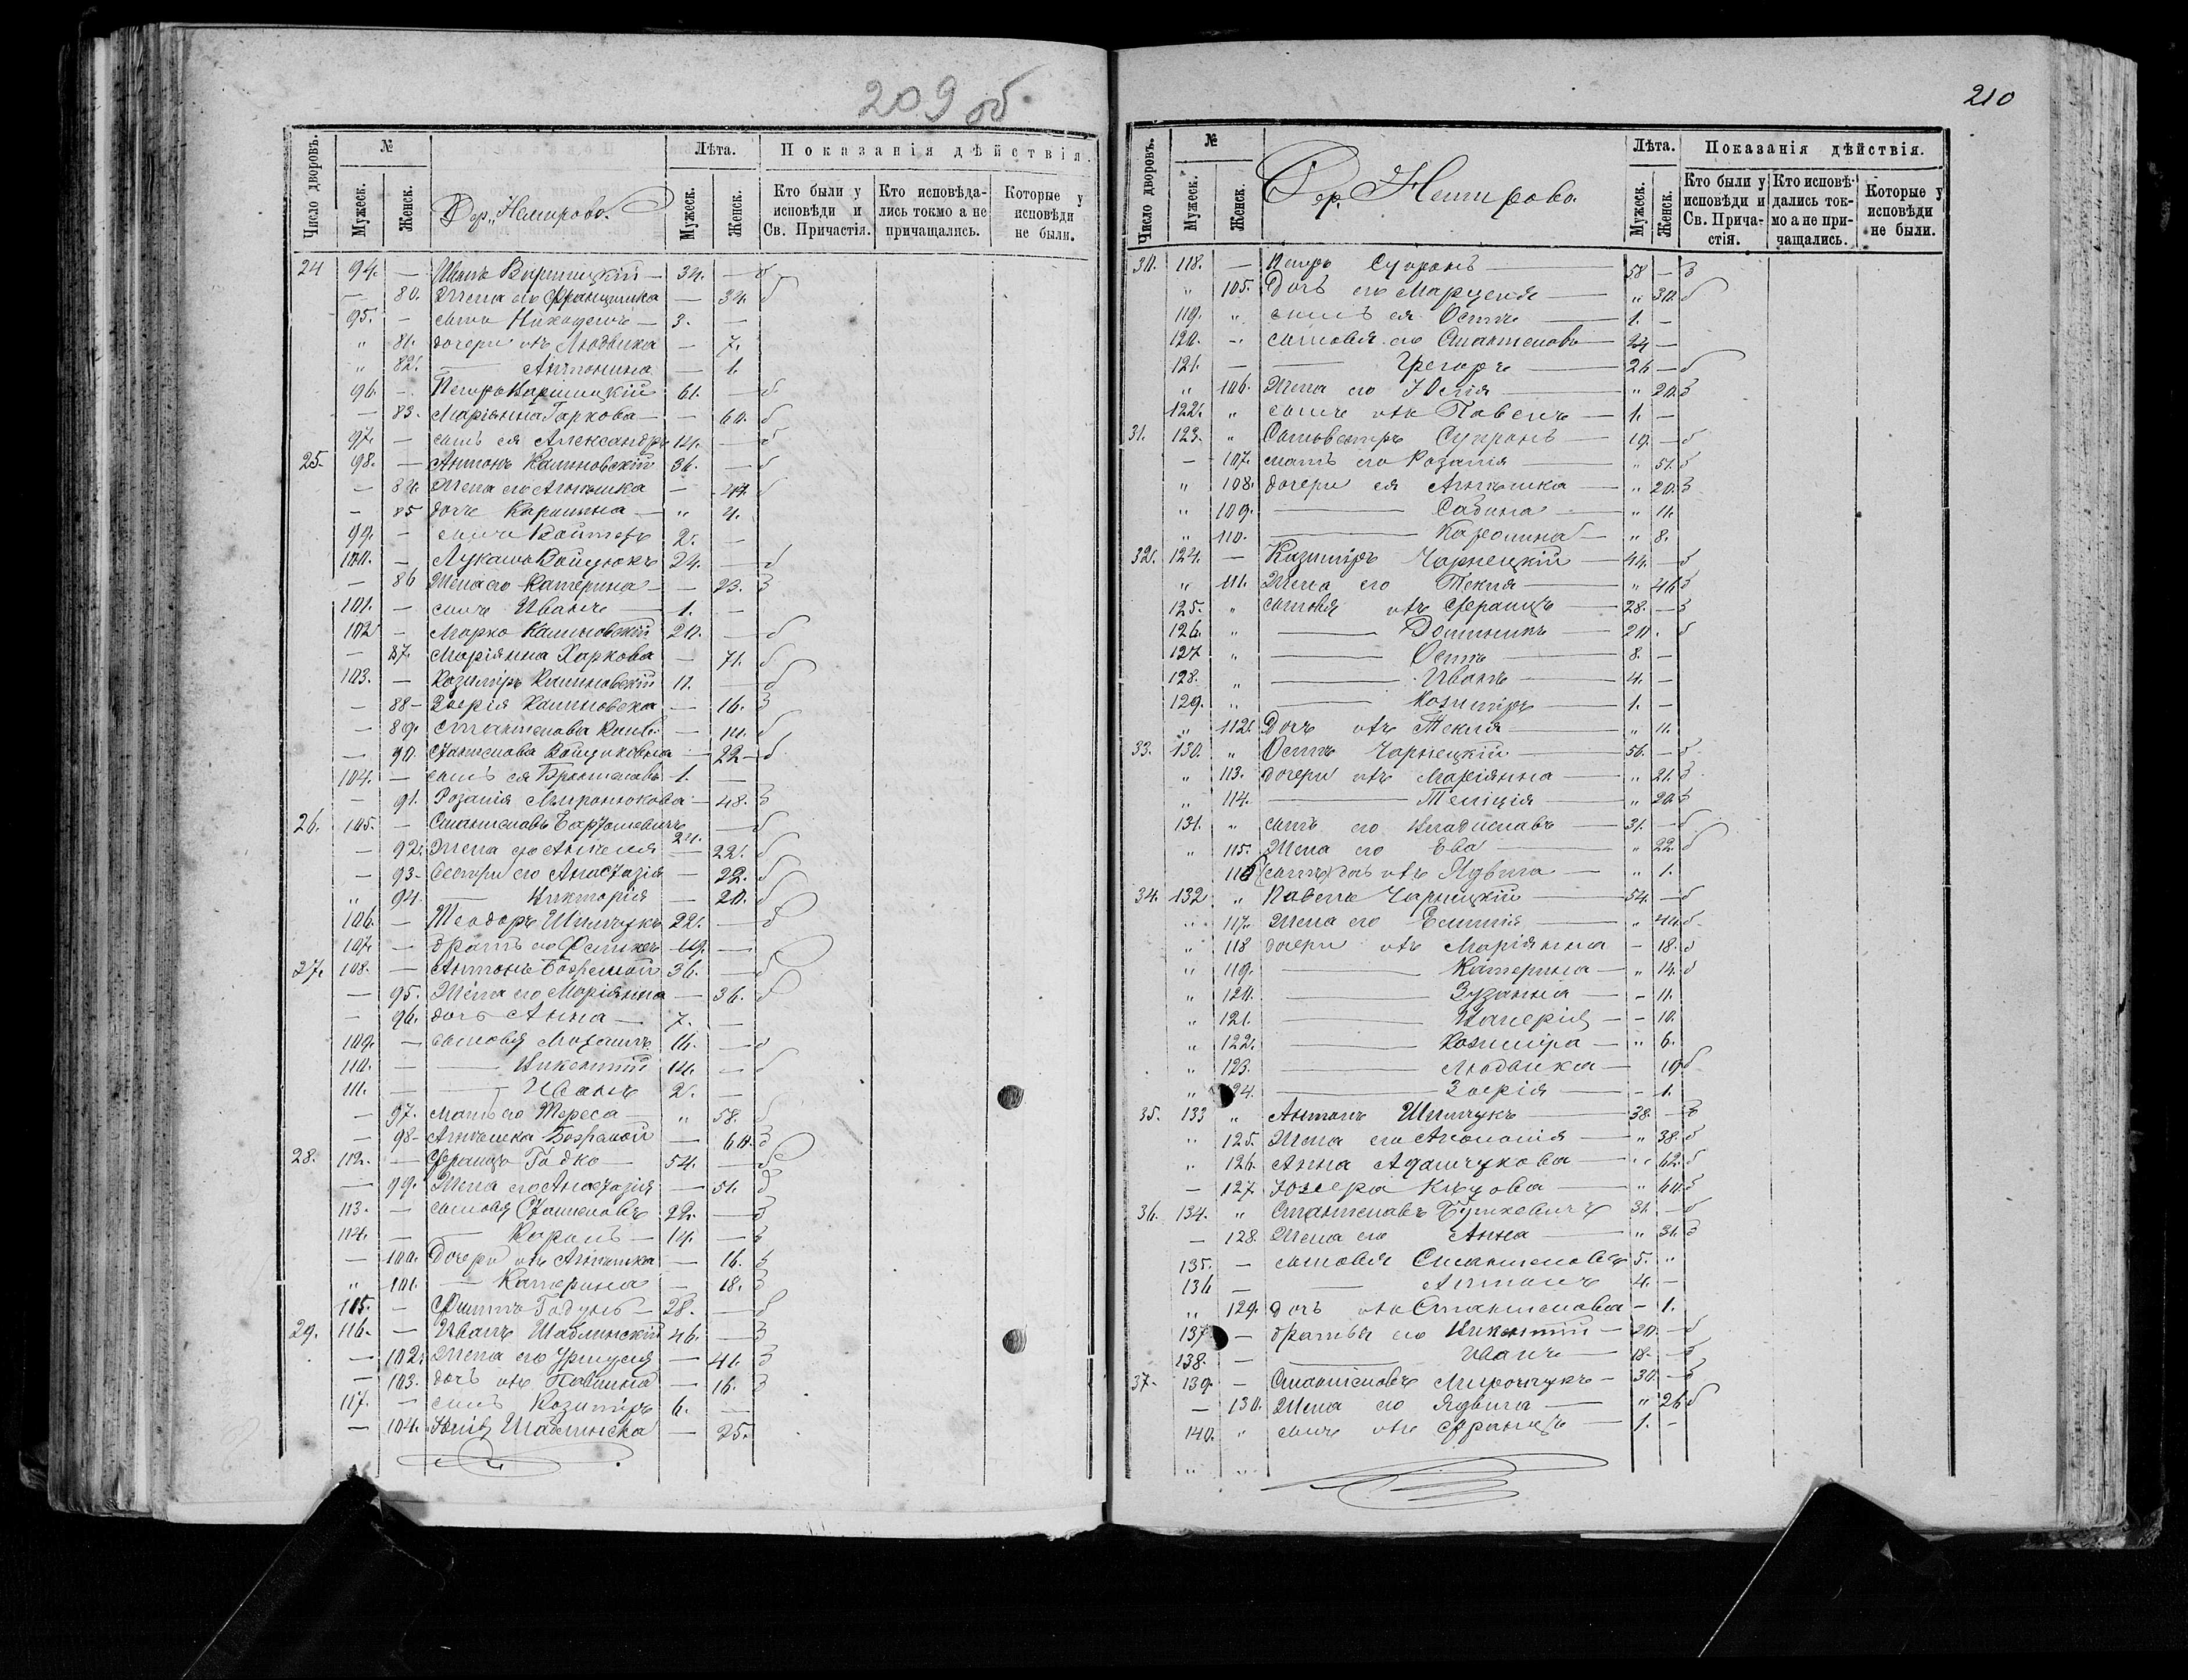 209 об
Число дворовъ. № Лѣта. Показанія дѣйствія.
Мужеск. Женск. Дер. Немирово. Мужеск. Женск. Кто были у исповѣди и Св. Причастія. Кто исповѣдались токмо а не причащались. Которые у исповѣди не были.
24 94. — 34. — б
— 80. Жена его Францишка — 34. б
95. — сынъ Никодемъ — 3. —
" 81. дочери ихъ Людвика — 7.
" 82. — Антонина — 1.
96. — Петръ 61. — б
— 83. Маріянна Гаркова — 60. б
97. — сынъ ея Александръ 14. — б
25. 98. — Антонъ Калиновскій 36. — б
— 84. Жена его Агнѣшка — 44. б
— 85 дочь " 4.
99. — сынъ 2. —
100. — Лукашъ Войцюкъ 24. — б
— 86 Жена его Катерина — 23. б
101. — сынъ Иванъ — 1. —
102 — Марко Калиновскій 20. — б
— 87. Маріянна Харкова — 71. б
103. — Казимиръ Калиновскій 11. — б
— 88 — Калиновска — 16. б
— 89. Станислава — 14. б
— 90. Станислава — 22 — б
104. — сынъ ея Брониславъ 1. —
— 91. Розалія Миронюкова — 48. б
26. 105. — Станиславъ Бартошевичъ 24. — б
— 92. Жена его Анѣеля — 22. б
— 93 — Сестры его Анастазія — 22. б
" 94. — Викторія — 20. б
106. — Теодоръ Шимчукъ 22. — б
107. — братъ его Феликсъ 19. —
27. 108. — Антонъ 36. — б
— 95. Жена его Маріянна — 36. б
— 96. дочь Анна — 7. —
109. — сыновья Михаилъ 16. — б
110. — Викентій 14. — б
111. — Иванъ 2. —
— 97. мать его Тереса — " 58. б
— 98 — Агнѣшка — 60. б
28. 112. — Францъ Годко — 54. — б
— 99. Жена его Анастазія — 51. б
113. — сыновья Станиславъ 22. — б
114. — Кароль — 14. — б
— 100. Дочери ихъ Агнѣшка — 16. б
" 101. — Катерина — 18. б
115. — Филипъ Годунъ — 28. — б
29. 116. — Иванъ Шаблинскій 46. — б
— 102. Жена его Уршуля — 41. б
— 103. дочь ихъ Павлина — 16. б
117. — сынъ Казиміръ 6. —
— 104. Шаблинска — 25.
210
Число дворовъ. № Лѣта. Показанія дѣйствія.
Мужеск. Женск. Дер. Немирово. Мужеск. Женск. Кто были у исповѣди и Св. Причастія. Кто исповѣдались токмо а не причащались. Которые у исповѣди не были.
30. 118. — Петръ Супронъ — 58 — б
" 105. Дочь его Марцеля — " 30. б
119. " сынъ ея Осипъ — 1. —
120. — сыновья его Станиславъ — 24 —
121. — Грегоръ — 26 — б
" 106. Жена его Юлія — " 20. б
122. " сынъ ихъ Павелъ — 1. —
31. 123. " Сильвестръ Супронъ — 19. — б
— 107. мать его Розалія — " 51. б
" 108. дочери ея Агнѣшка — " 20. б
" 109. — Сабина — " 11.
" 110. — Каролина — " 8.
32. 124. — Казиміръ Чарнецкій — 44. — б
" 111. Жена его Текля — " 46. б
125. " сыновья ихъ Францъ — 28. — б
126. " — Доминикъ — 20. б
127 " — Осипъ — 8. —
128. " — Иванъ — 4. —
129. " — Казиміръ — 1. —
" 112. Дочь ихъ Текля — " 11.
33. 130. " Осипъ Чарнецкій — 56. — б
" 113. дочери ихъ Маріянна — " 21. б
" 114. — " 20. б
131. " сынъ его Владиславъ — 31. — б
" 115. Жена его Ева — " 22. б
116 дочь ихъ Ядвига — " 1.
34. 132 " Павелъ Чарнецкій — 54. — б
" 117. Жена его — " 44. б
" 118 дочери ихъ Маріянна — 18. б
" 119. — Катерина — " 14. б
" 120. — Зузанна — 11.
" 121. — Валерія — 10.
" 122. — Казиміра — " 6.
" 123. — Людвика — 19 б
" 124. — Зофія — 1.
35. 133 " Антонъ Шимчукъ — 38. — б
" 125. Жена его Аполонія — " 38. б
" 126. Анна Адамчукова — " 62. б
— 127 — " 60. б
36. 134. " Станиславъ 31. — б
— 128. Жена его Анна — " 31. б
135. — сыновья Станиславъ 5. "
136 — Антонъ 4. —
" 129. дочь ихъ Станислава — 1.
137 — братья его Викентій — 20. — б
138. — Иванъ — 18. — б
37. 139 — Станиславъ Мирончукъ — 30. — б
— 130. Жена его Ядвига — " 26 б
140. " сынъ ихъ Францъ — 1. —
" "